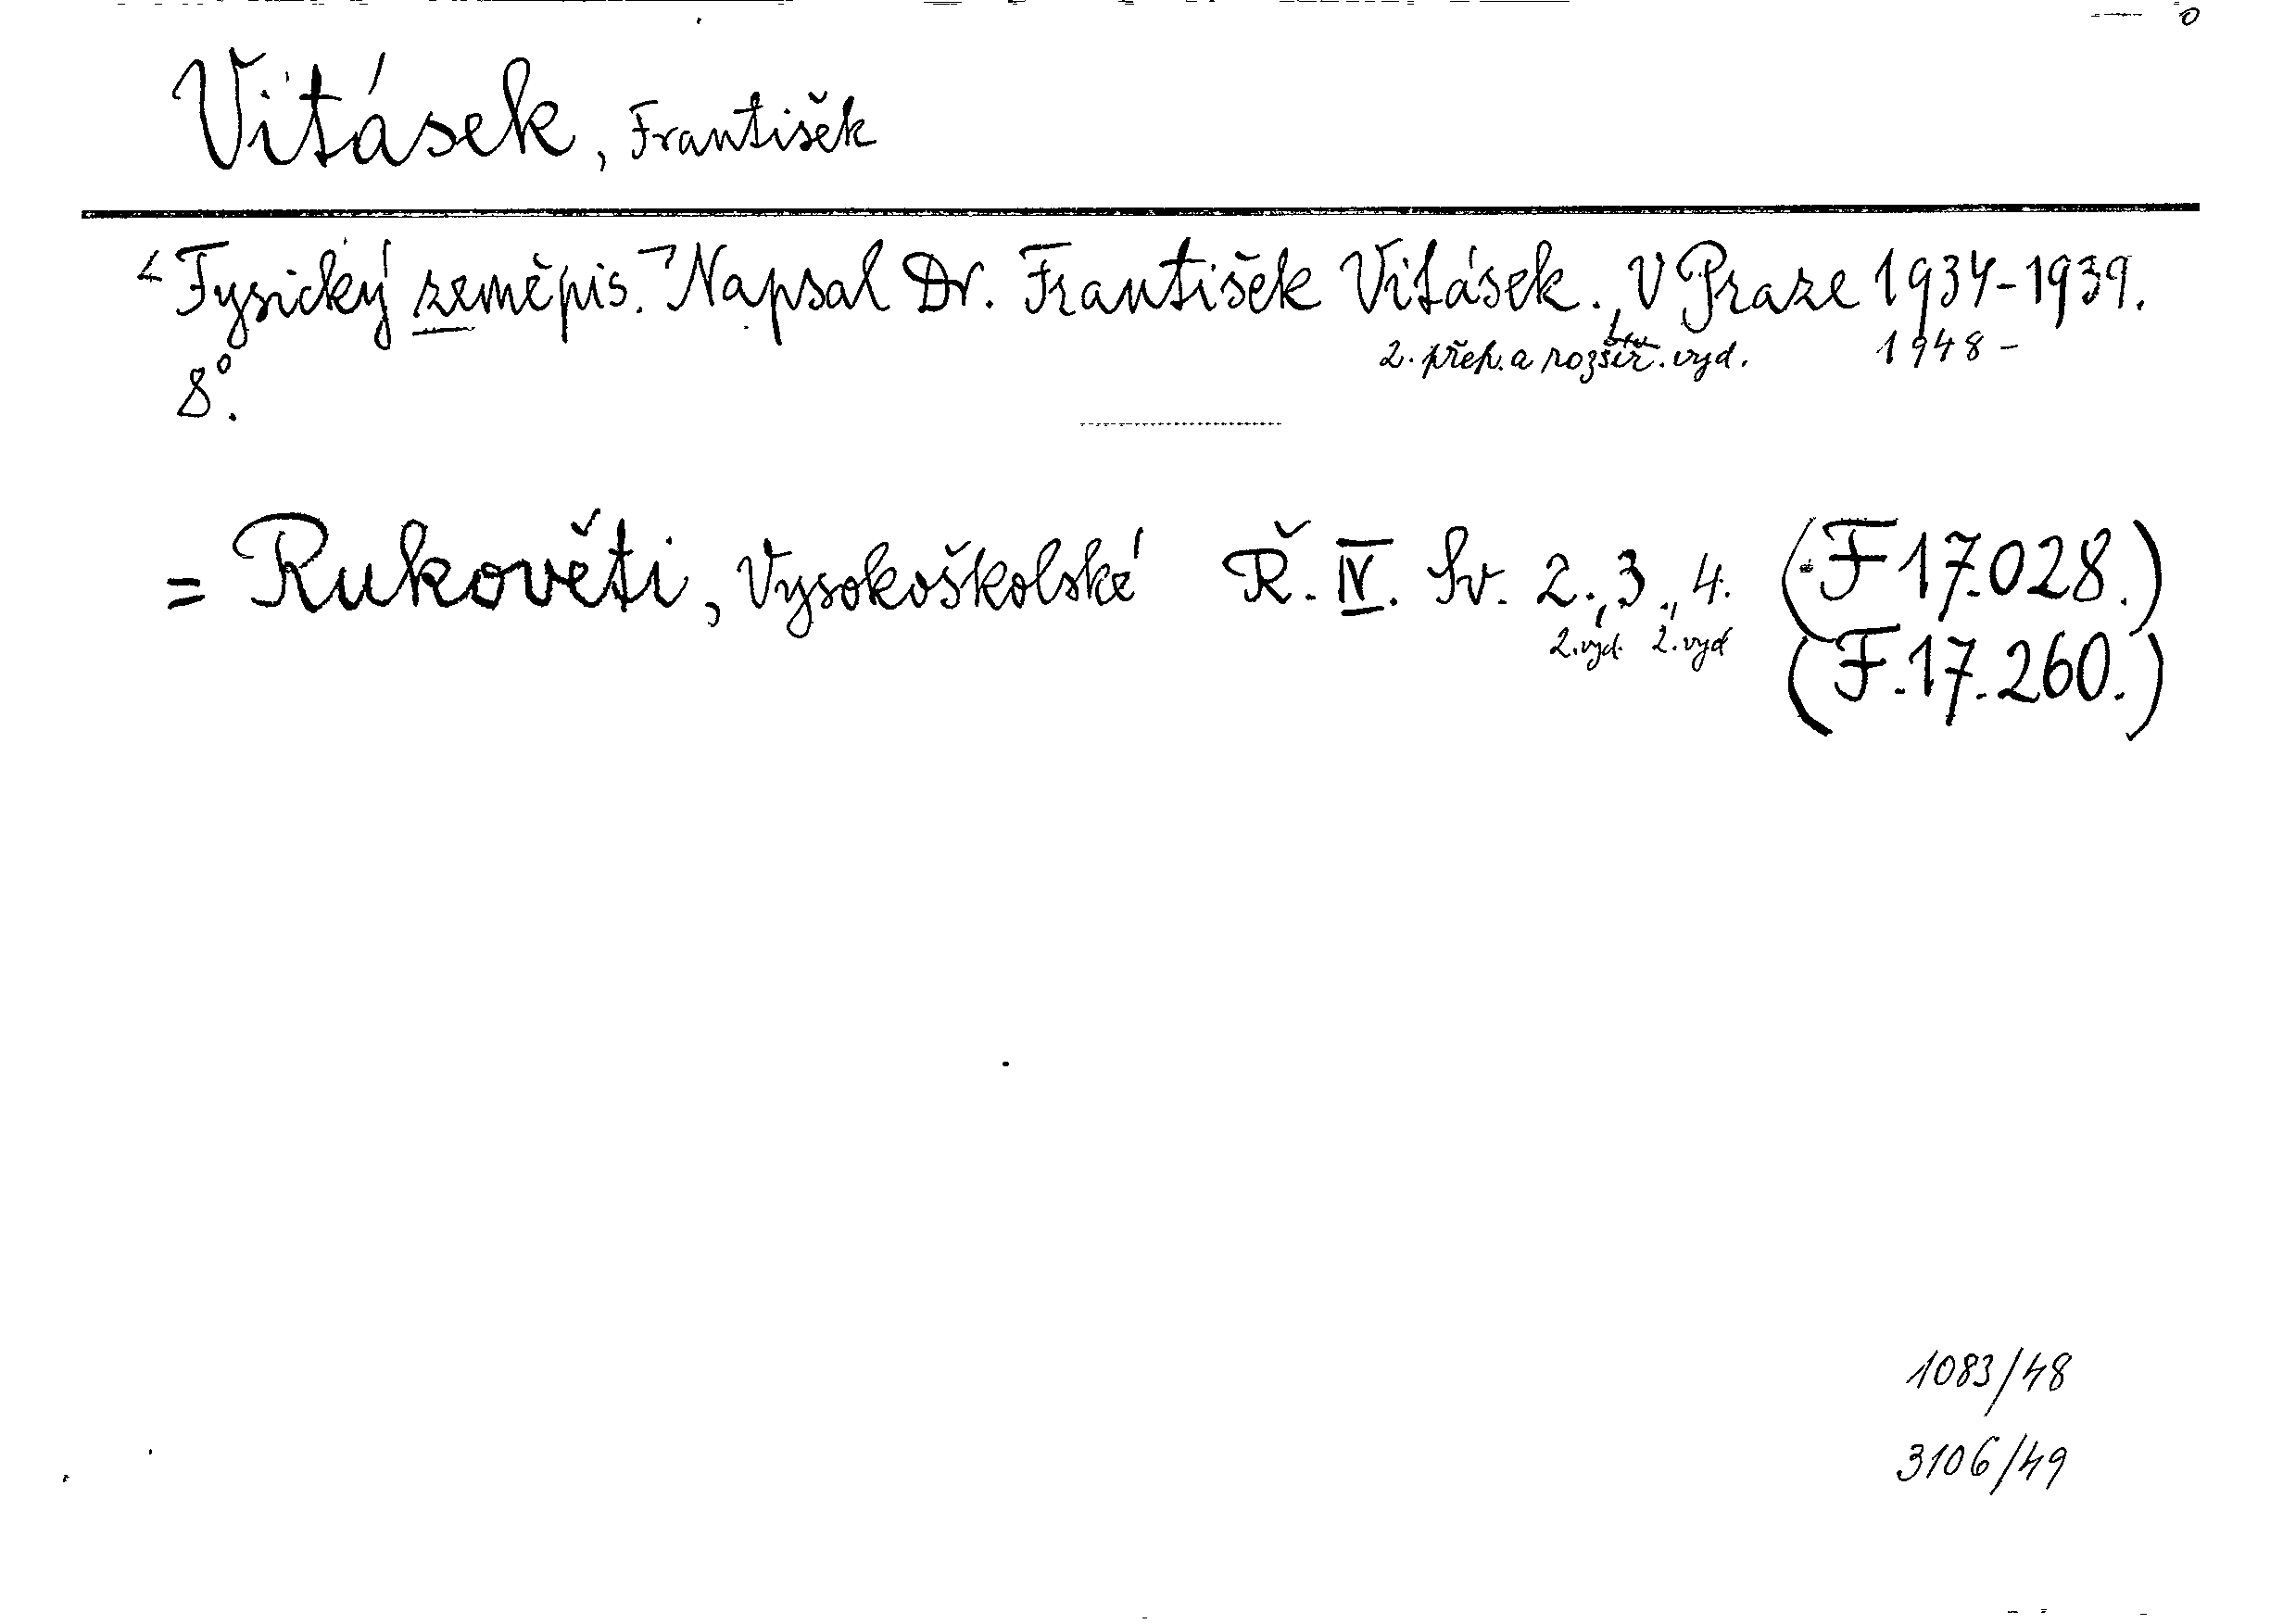 Vitásek, František
Fysický zeměpis. Napsal Dr. František Vitásek. V Praze 1934-1939.
2. přep. a rozšíř. vyd. 1948-
8°.
= Rukověti, Vysokoškolské Ř. IV. Sv. 2., 3., 4. (F 17.028.)
2. vyd. 2. vyd
(F. 17. 260.)
1083/48
3106/49